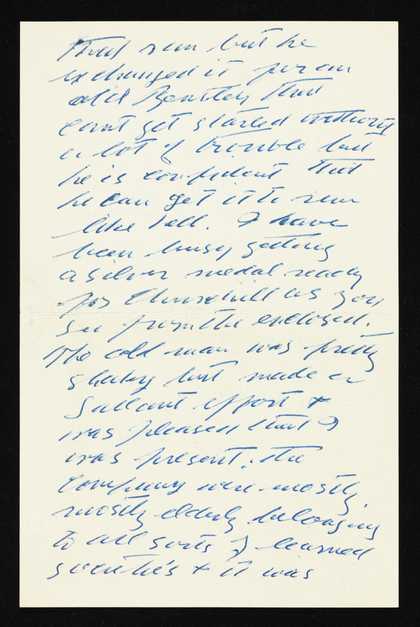 that ran but he
exchanged it for an
old Bentley that
cant get started without
a lot of trouble but
he is confident that
he can get it to run
like hell. I have
been busy getting
a silver medal ready
for Churchill as you
see from the enclosed.
The old man was pretty
shaky but made a
gallant effort &
was pleased that I
was present; the
company were mostly
mostly elderly belonging
to all sorts of learned
societies & it was